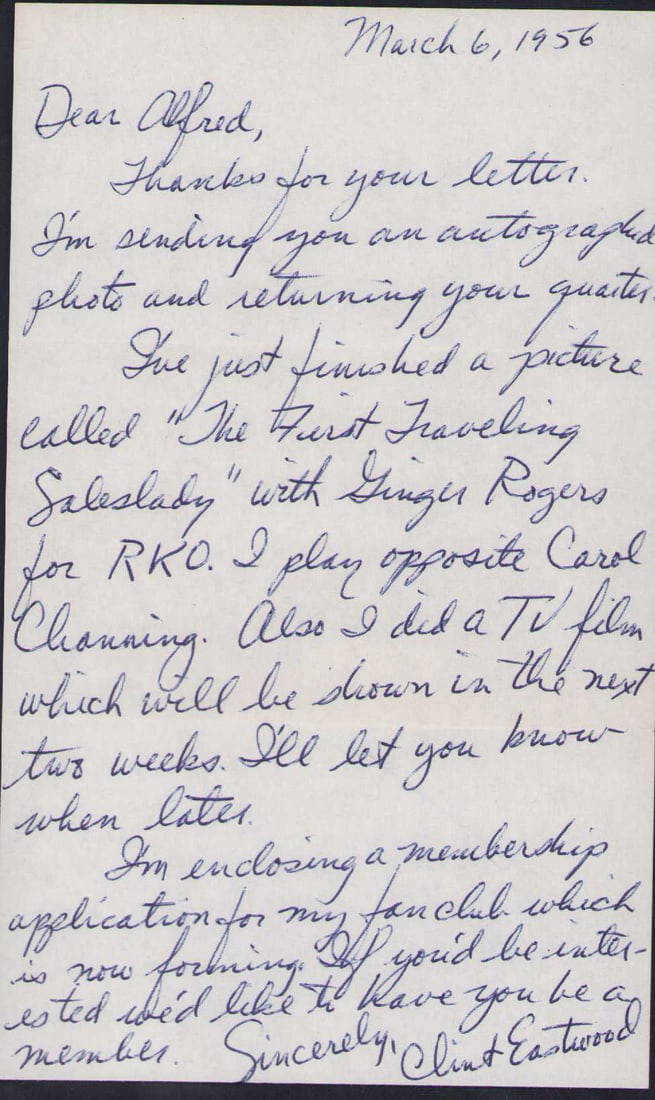 March 6, 1956
Dear Alfred,
Thanks for your letter.
I'm sending you an autographed
photo and returning your quarter.
I've just finished a picture
called "The First Traveling
Saleslady" with Ginger Rogers
for RKO. I play opposite Carol
Channing. Also I did a TV film
which will be shown in the next
two weeks. I'll let you know
when later.
I'm enclosing a membership
application for my fan club which
is now forming. If you'd be inter-
ested we'd like to have you be a
member. Sincerely, Clint Eastwood